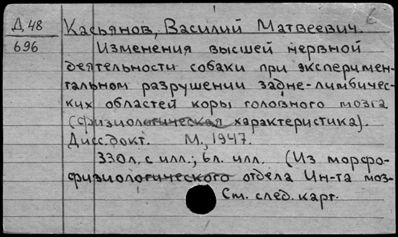 Д.48 Касьянов, Василий Матвеевич.
696 Изменения высшей нервной
деятельности собаки при эксперимен-
тальном разрушении задне-лимбичес-
ких областей коры головного мозга
(физиологическая характеристика).
Дисс. докт. М., 1947.
330л. с илл.; 6л. илл. (Из морфо-
физиологического отдела Ин-та моз-
См. след. карт.